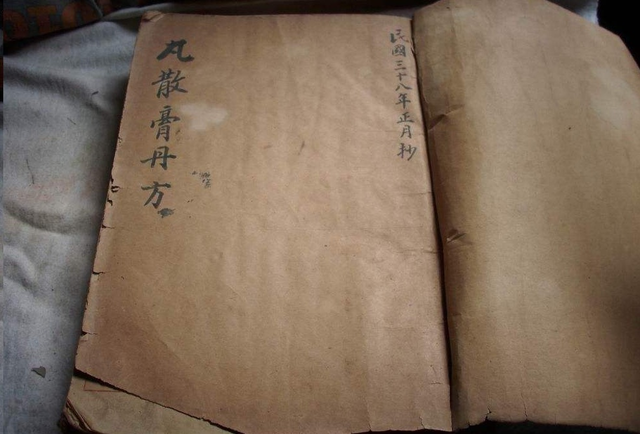 民國三十八年正月抄
丸散膏丹方